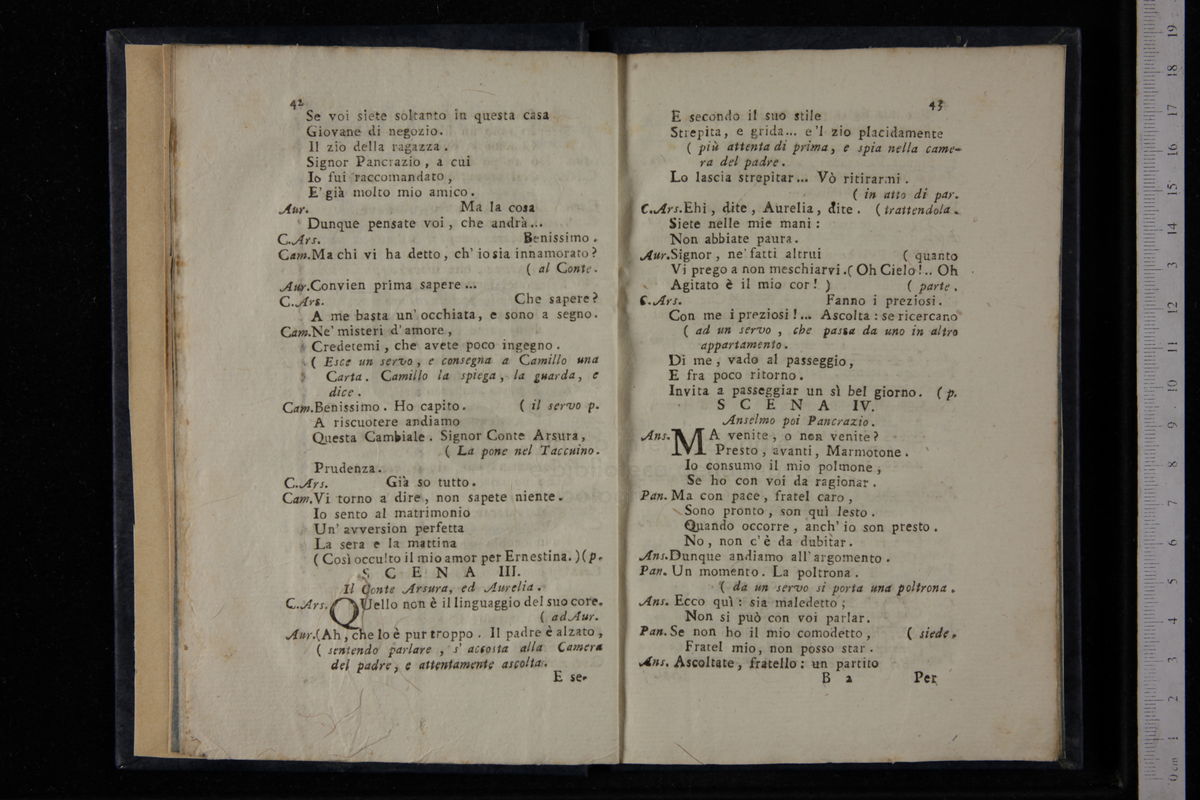 42
Se voi siete soltanto in questa casa
Giovane di negozio.
Il zio della ragazza.
Signor Pancrazio, a cui
Io fui raccomandato,
E' già molto mio amico.
Aur. Ma la cosa
Dunque pensate voi, che andrà...
C.Ars. Benissimo.
Cam.Ma chi vi ha detto, ch' io sia innamorato?
( al Conte.
Aur.Convien prima sapere...
C.Ars. Che sapere?
A me basta un' occhiata, e sono a segno.
Cam.Ne' misteri d' amore,
Credetemi, che avete poco ingegno.
( Esce un servo, e consegna a Camillo una
Carta. Camillo la spiega, la guarda, e
dice.
Cam.Benissimo. Ho capito. ( il servo p.
A riscuotere andiamo
Questa Cambiale. Signor Conte Arsura,
( La pone nel Taccuino.
Prudenza.
C.Ars. Già so tutto.
Cam.Vi torno a dire, non sapete niente.
Io sento al matrimonio
Un' avversion perfetta
La sera e la mattina
( Così occulto il mio amor per Ernestina.)(p.
SCENA III.
Il Conte Arsura, ed Aurelia.
C.Ars.QUello non è il linguaggio del suo core.
( ad Aur.
Aur.(Ah, che lo è pur troppo. Il padre è alzato,
( sentendo parlare, s' accosta alla Camera
del padre, e attentamente ascolta.
E se-
43
E secondo il suo stile
Strepita, e grida... e 'l zio placidamente
( più attenta di prima, e spia nella came-
ra del padre.
Lo lascia strepitar... Vò ritirarmi.
( in atto di par.
C.Ars.Ehi, dite, Aurelia, dite. (trattendola.
Siete nelle mie mani:
Non abbiate paura.
Aur.Signor, ne' fatti altrui ( quanto
Vi prego a non meschiarvi.( Oh Cielo!.. Oh
Agitato è il mio cor! ) ( parte.
C.Ars. Fanno i preziosi.
Con me i preziosi!... Ascolta: se ricercano
( ad un servo, che passa da uno in altro
appartamento.
Di me, vado al passeggio,
E fra poco ritorno.
Invita a passeggiar un sì bel giorno. (p.
SCENA IV.
Anselmo poi Pancrazio.
Ans.MA venite, o non venite?
Presto, avanti, Marmotone.
Io consumo il mio polmone,
Se ho con voi da ragionar.
Pan. Ma con pace, fratel caro,
Sono pronto, son quì lesto.
Quando occorre, anch' io son presto.
No, non c' è da dubitar.
Ans.Dunque andiamo all' argomento.
Pan. Un momento. La poltrona.
( da un servo si porta una poltrona.
Ans. Ecco quì: sia maledetto;
Non si può con voi parlar.
Pan.Se non ho il mio comodetto, ( siede.
Fratel mio, non posso star.
Ans. Ascoltate, fratello: un partito
B 2 Per
0 cm 1 2 3 4 5 6 7 8 9 10 11 12 13 14 15 16 17 18 19